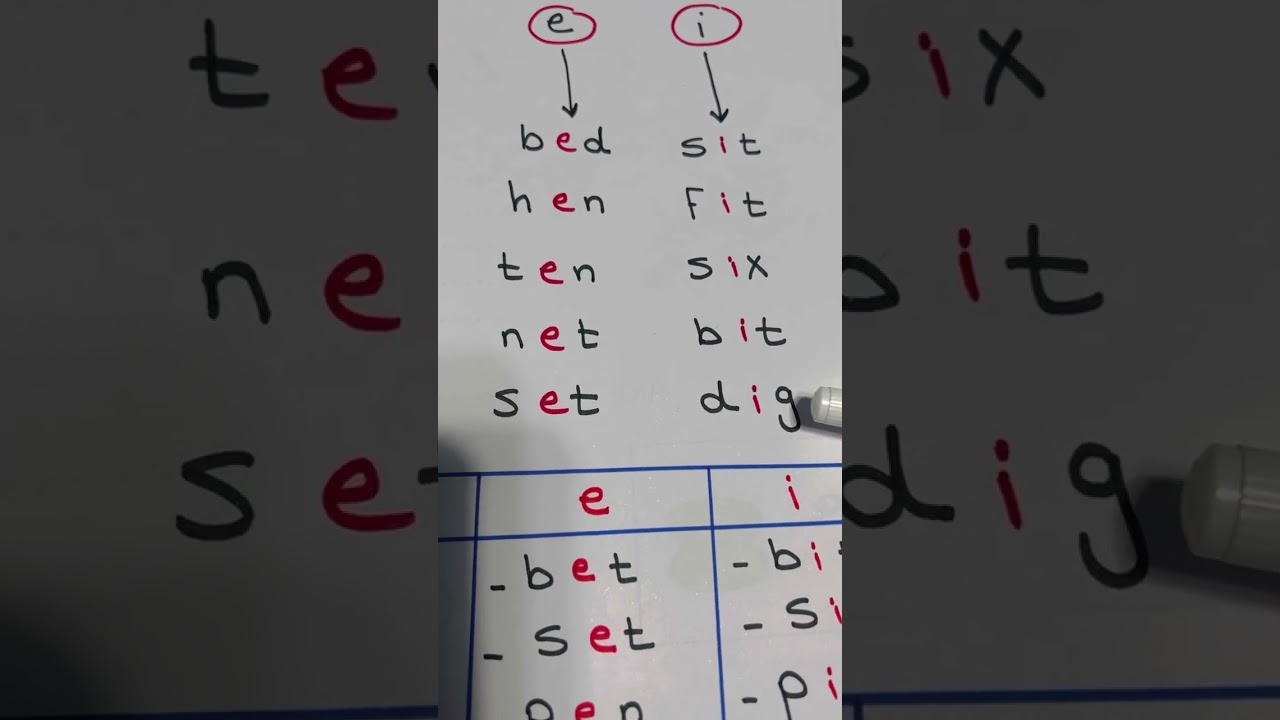 e i
bed sit
hen Fit
ten six
net bit
set dig
e i
- bet -
- set -